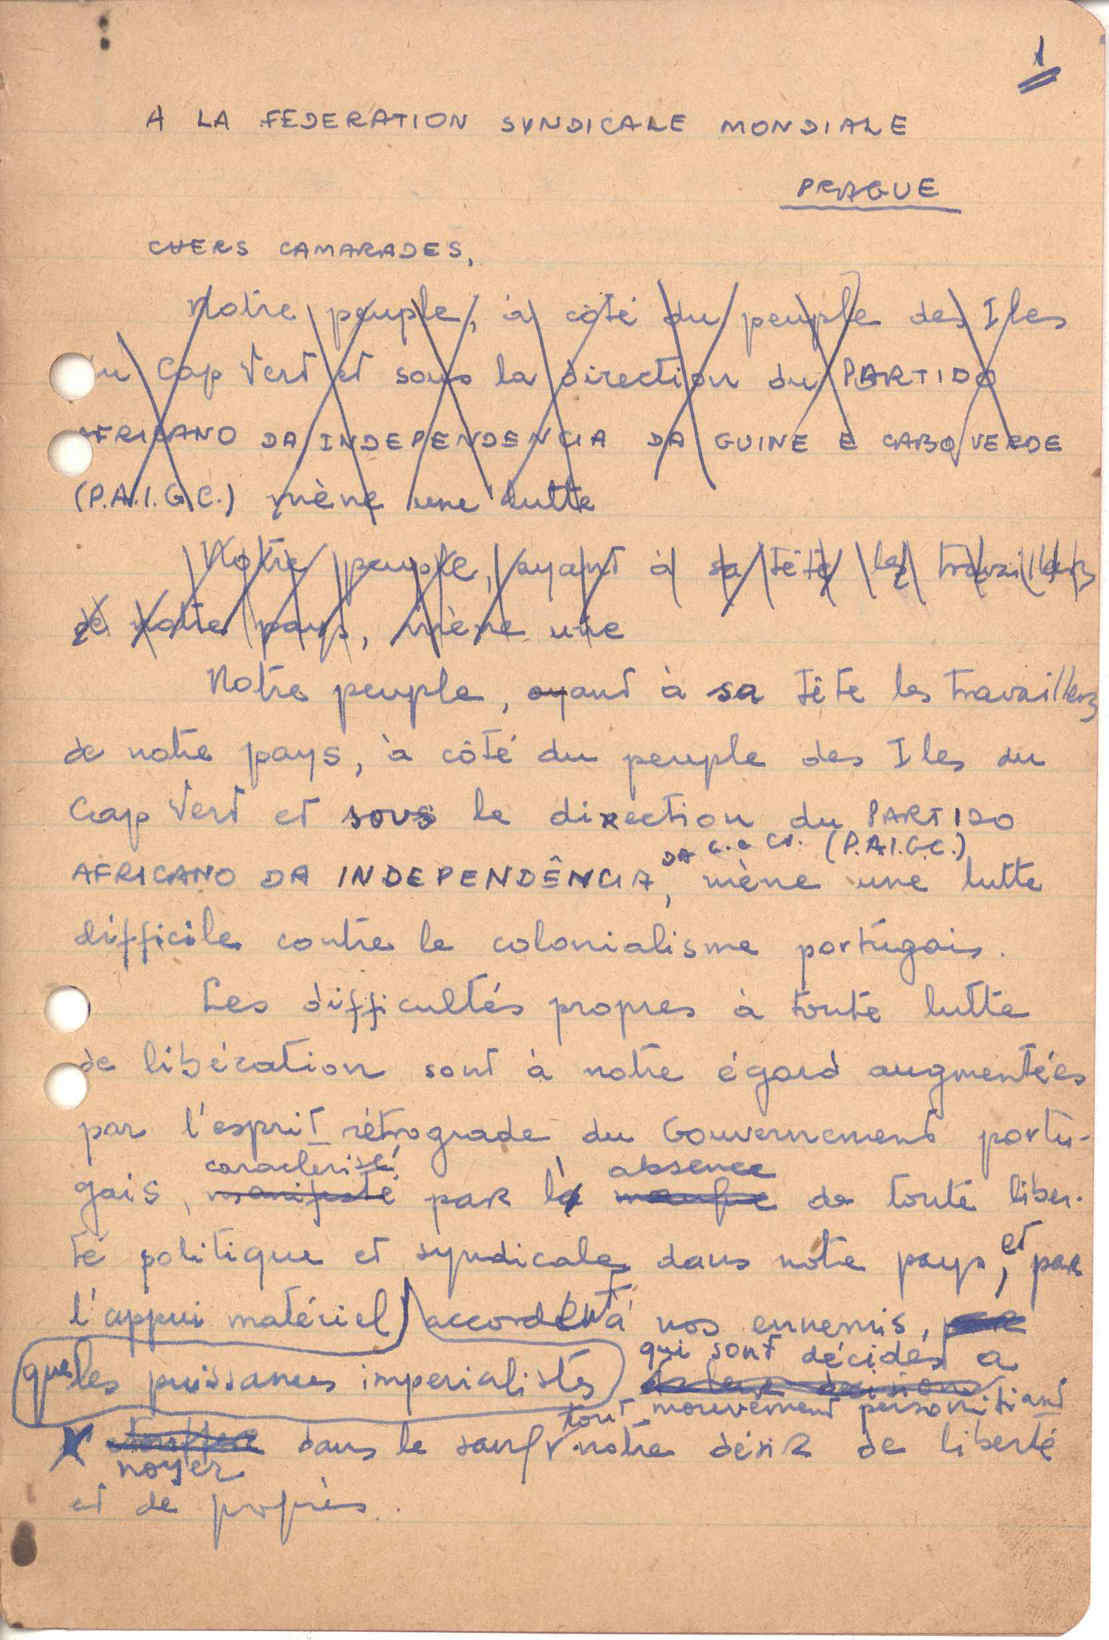 1
A LA FEDERATION SYNDICALE MONDIALE
PRAGUE
CHERS CAMARADES,
Notre peuple, à côté du peuple des Iles
du Cap Vert et sous la direction du PARTIDO
AFRICANO DA INDEPENDENCIA DA GUINE E CABO VERDE
(P.A.I.G.C.) mène une lutte
Notre peuple, ayant à sa tête les travaillers
de notre pays, mène une
Notre peuple, ayant à sa tête les travaillers
de notre pays, à côté du peuple des Iles du
Cap Vert et sous le direction du PARTIDO
DA G. e CV. (P.A.I.G.C.)
AFRICANO DA INDEPENDÊNCIA, mène une lutte
difficile contre le colonialisme portugais.
Les difficultés propres à toute lutte
de libération sont à notre égard augmentées
par l'esprit rétrograde du Gouvernement portu-
caracterisé absence
gais, manifesté par la manque de toute liber-
té politique et syndicale dans notre pays, et par
l'appui matériel accordent à nos ennemis, par
qui sont décidés a
que les puissances imperialistes de leur decision
tout mouvement personifiant
étouffer dans le sang notre désir de liberté
noyer
et de progrès.